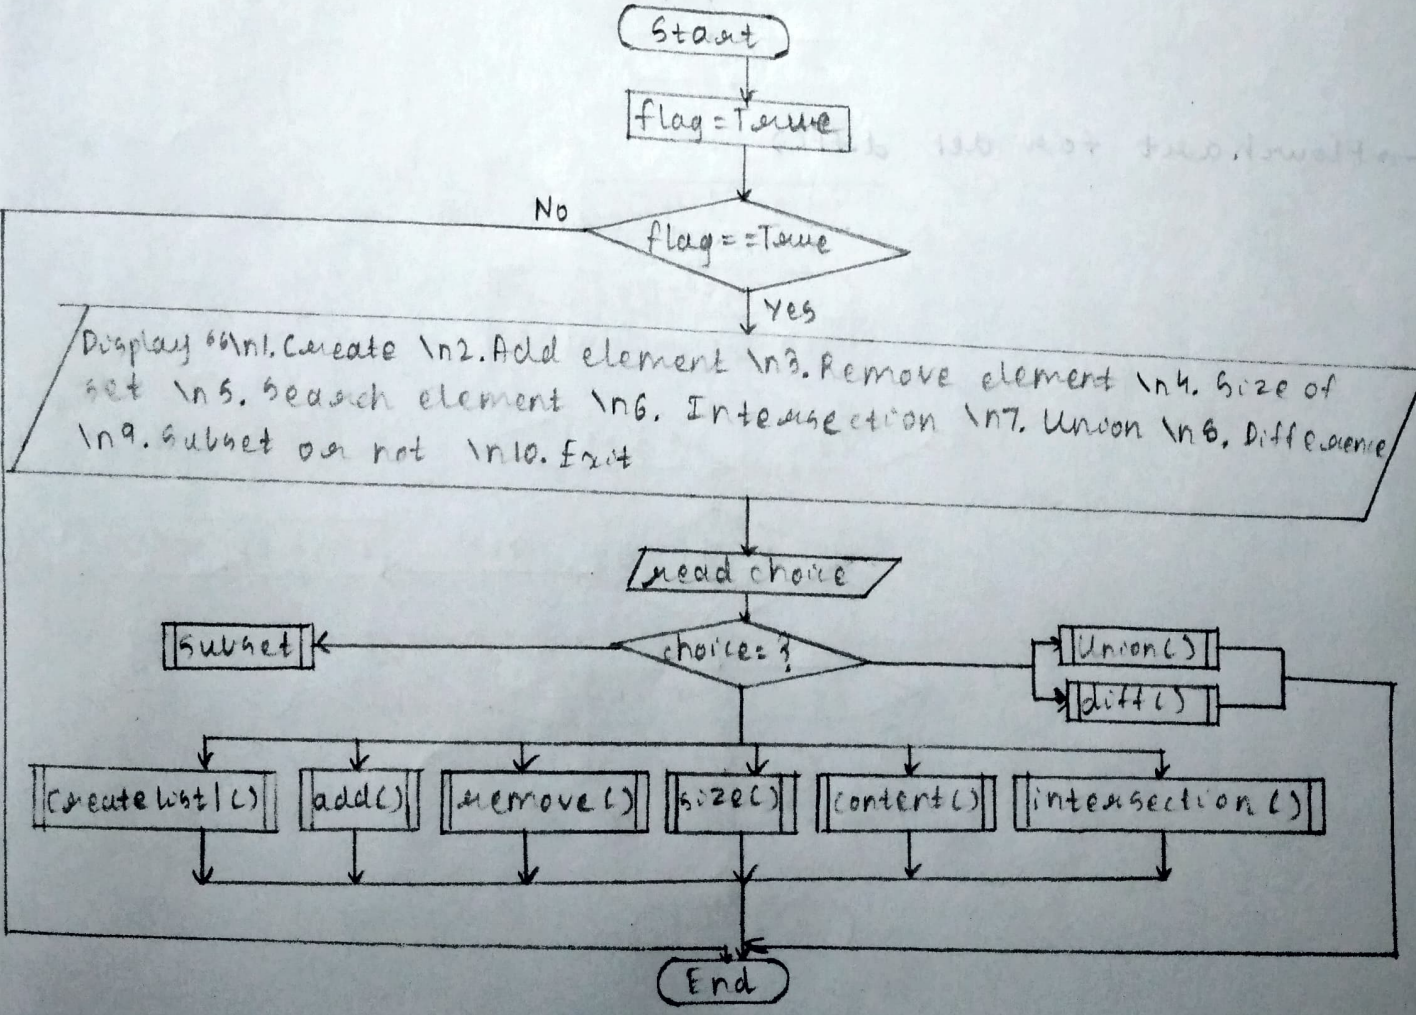 Start
flag=True
No
flag==True
Yes
Display “\n1.Create \n2.Add element \n3.Remove element \n4.Size of
set \n5.Search element \n6.Intersection \n7.Union \n8.Difference
\n9.Subset or not \n10.Exit
read choice
subset
choice=?
Union()
diff()
Createlist1()
add()
remove()
size()
content()
intersection()
End